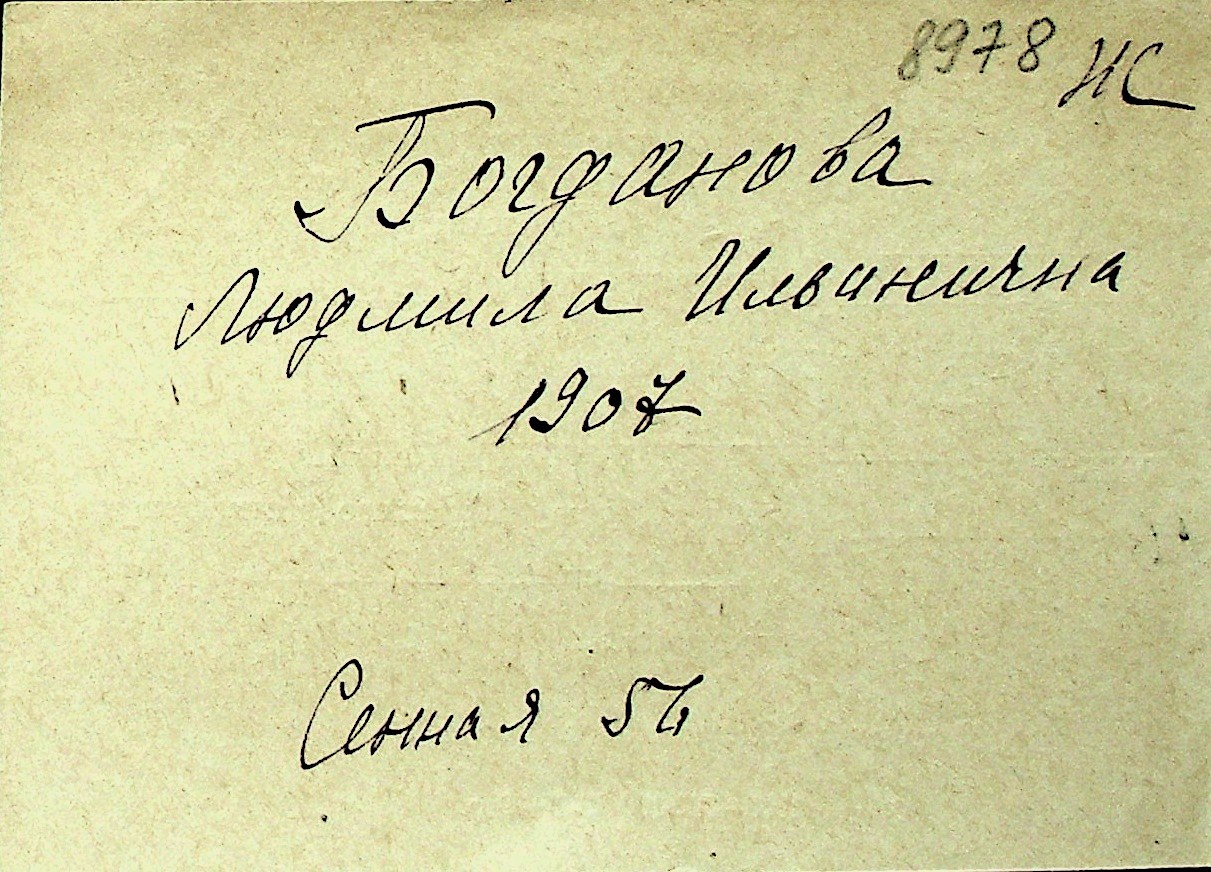 8978 ИС
Богданова
Людмила Ильинична
1907
Сенная 54